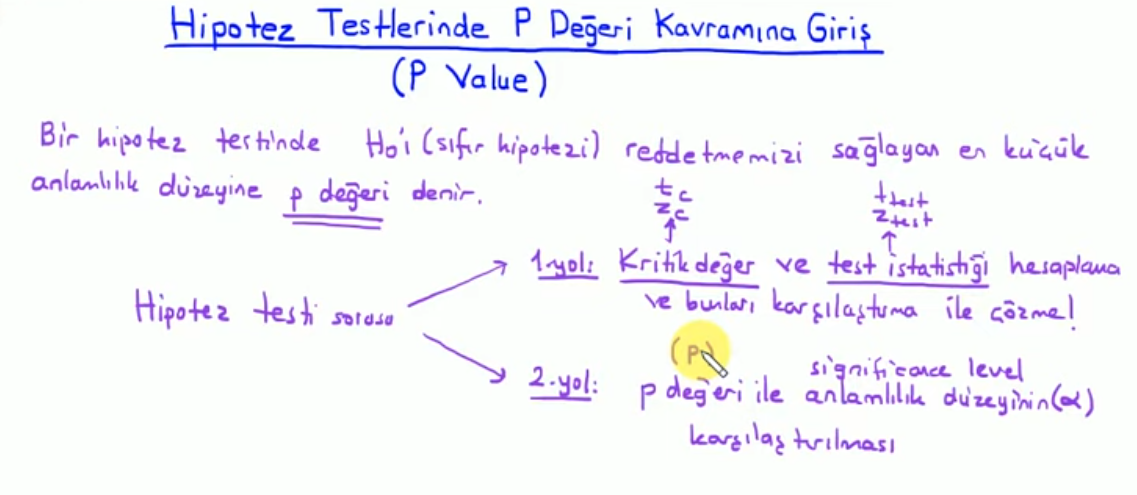 Hipotez Testlerinde P Değeri Kavramına Giriş
(P Value)
Bir hipotez testinde H₀'ı (sıfır hipotezi) reddetmemizi sağlayan en küçük
anlamlılık düzeyine p değeri denir.
t_c
z_c
t_test
z_test
1.yol: Kritik değer ve test istatistiği hesaplama
ve bunları karşılaştırma ile çözme!
Hipotez testi sorusu
(P)
significance level
2.yol: p değeri ile anlamlılık düzeyinin (α)
karşılaştırılması